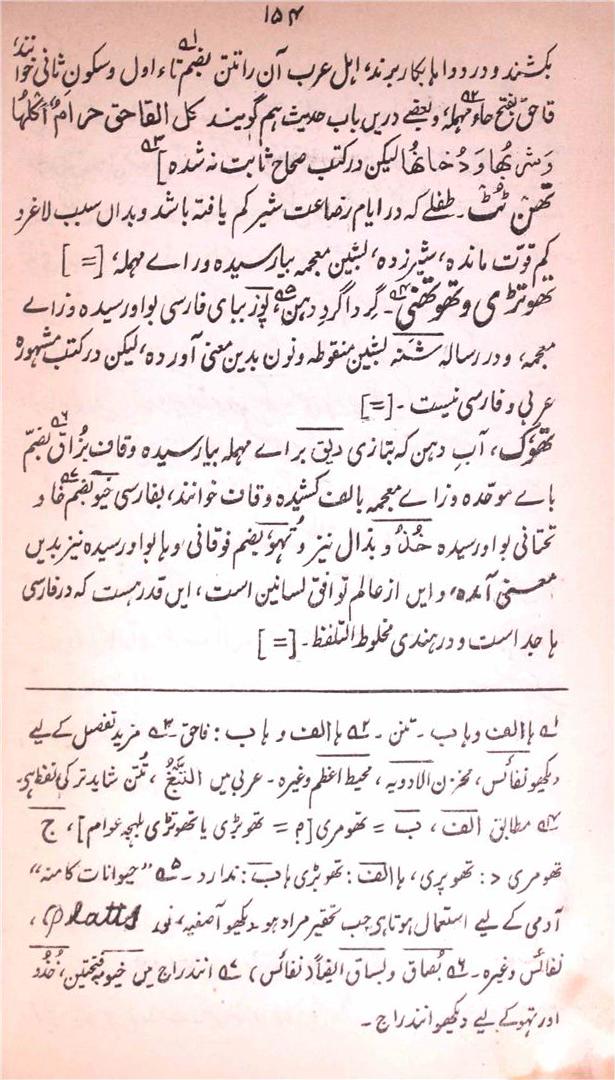 ۱۵۴
بکشند و در دواہا بکار برند، اہل عرب آن را تتن بضم تاء اول و سکون ثانی خوانند،
قاحق بفتح حاء مہملہ، و بعضے دریں باب حدیث ہم گویند کل القاحق حرامٌ اَکلُہا
وَشُربُہا وَدُخانُہا لیکن در کتب صحاح ثابت نہ شدہ]
تھن ٹٹ۔ طفلے کہ در ایام رضاعت شیر کم یافتہ باشد و بداں سبب لاغر و
کم قوّت ماندہ، شیرزدہ، بشین معجمہ بیا رسیدہ و راے مہملہ، [=]
تھوتڑی و تھوتھنی۔ گرداگردِ دہن، پوز ببای فارسی بواو رسیدہ و زاے
معجمہ، و در رسالہ شَنہ بشین منقوطہ و نون بدین معنی آوردہ، لیکن در کتب مشہورہ
عربی و فارسی نیست۔ [=]
تھُوک، آبِ دہن کہ بتازی ریق براے مہملہ بیا رسیدہ و قاف بُزاق بضم
باے موحّدہ و زاے معجمہ بالف کشیدہ و قاف خوانند، بفارسی خیو بضم خا و
تحتانی بواو رسیدہ خُذُو بذال نیز و تُہو، بضم فوقانی و ہا بواو رسیدہ نیز بدیں
معنی آمدہ، و ایں از عالم توافق لسانین است، ایں قدر ہست کہ در فارسی
ہا جدا است و در ہندی مخلوط التلفظ۔ [=]
۱ہ ہا الف و ہا ب۔ تتن۔ ۲ہ ہا الف و ہا ب: فاحق۔ ۳ہ مزید تفصل کے لیے
دیکھو نفائس، مخزن الادویہ، محیط اعظم وغیرہ۔ عربی میں التَّبغُ، تُتُن شاید تر کی لفظ ہی۔
۴ہ مطابق الف، ب = تھومری [؟ = تھوبڑی یا تھوتڑی بلہجہ عوام]، ج
تھومری د: تھوپری، ہا الف: تھوبڑی ہا ب: ندارد۔ ۵ہ ”حیوانات کا منہ“
آدمی کے لیے استعمال ہوتا ہی جب تحقیر مراد ہو۔ دیکھو آصفیہ، نور Platts،
نفائس وغیرہ۔ ۶ہ بُصاق و بساق ایضاً (نفائس) ۷ہ انندراج میں خیو بفتحتین، خُدُو
اور تہو کے لیے دیکھو انندراج۔